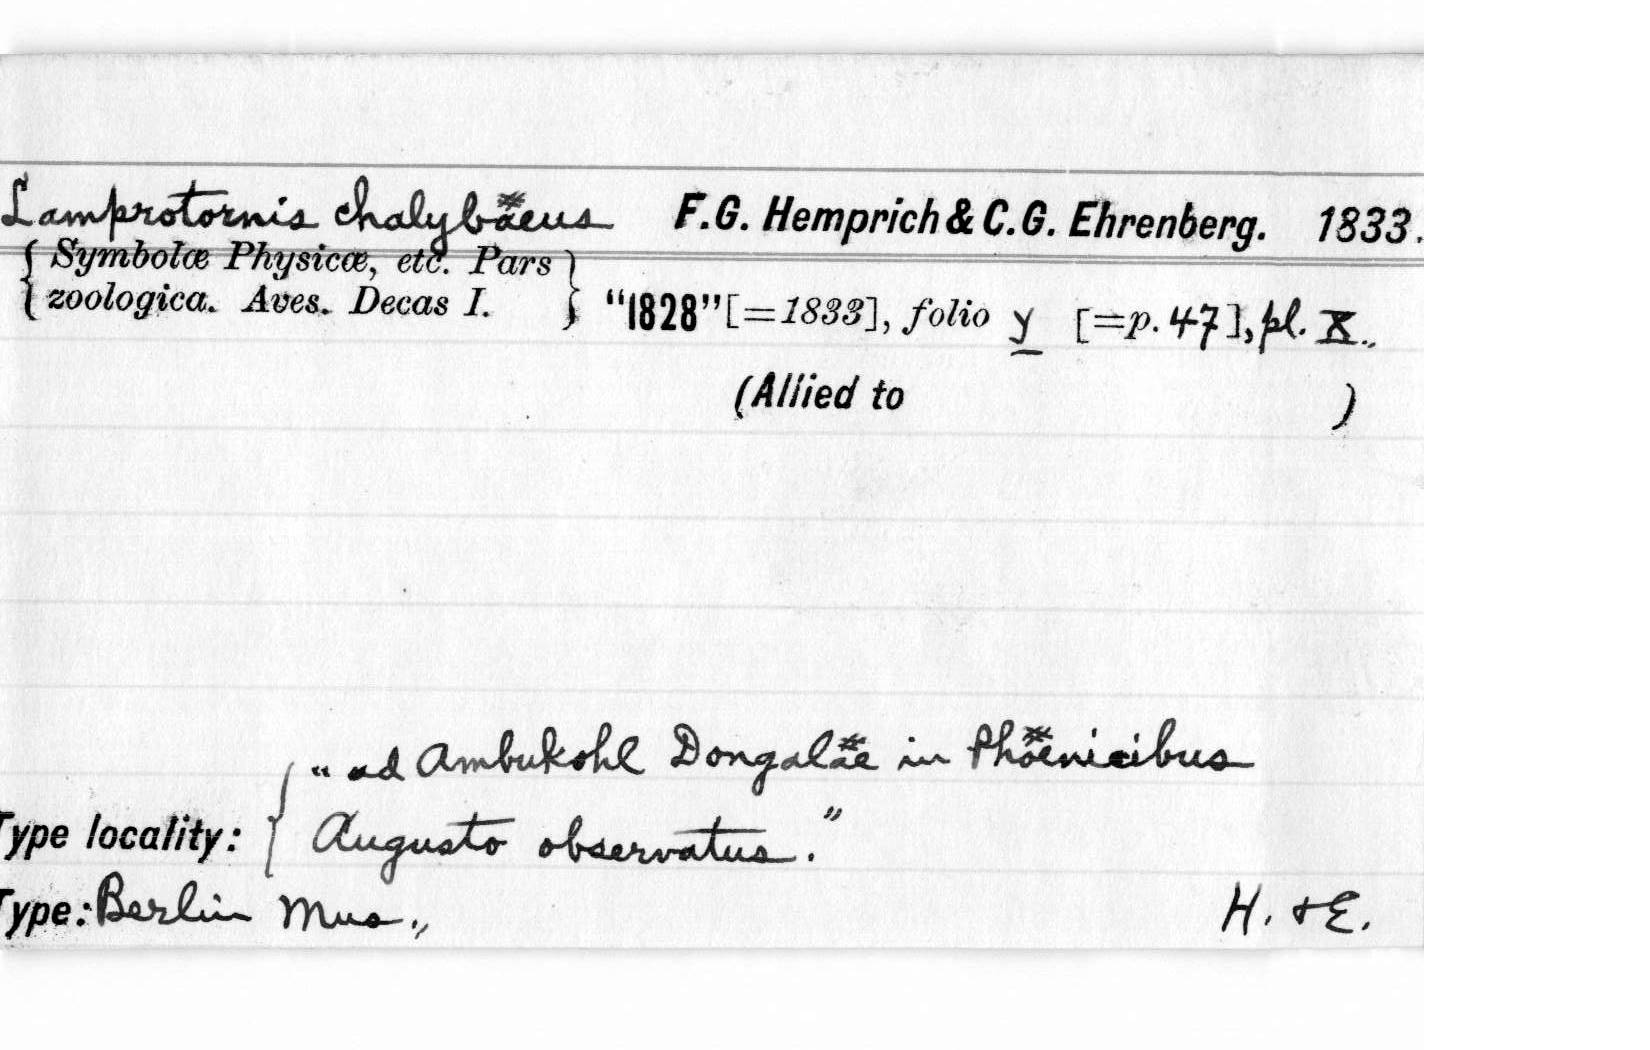 Lamprotornis chalybæus F.G. Hemprich & C.G. Ehrenberg. 1833.
{ Symbolæ Physicæ, etc. Pars }
{ zoologica. Aves. Decas I. } "1828" [=1833], folio y [=p. 47], pl. X.,
(Allied to )
"ad Ambukohl Dongalæ in Phœnicibus
Type locality: { Augusto observatus."
Type: Berlin Mus., H. & E.